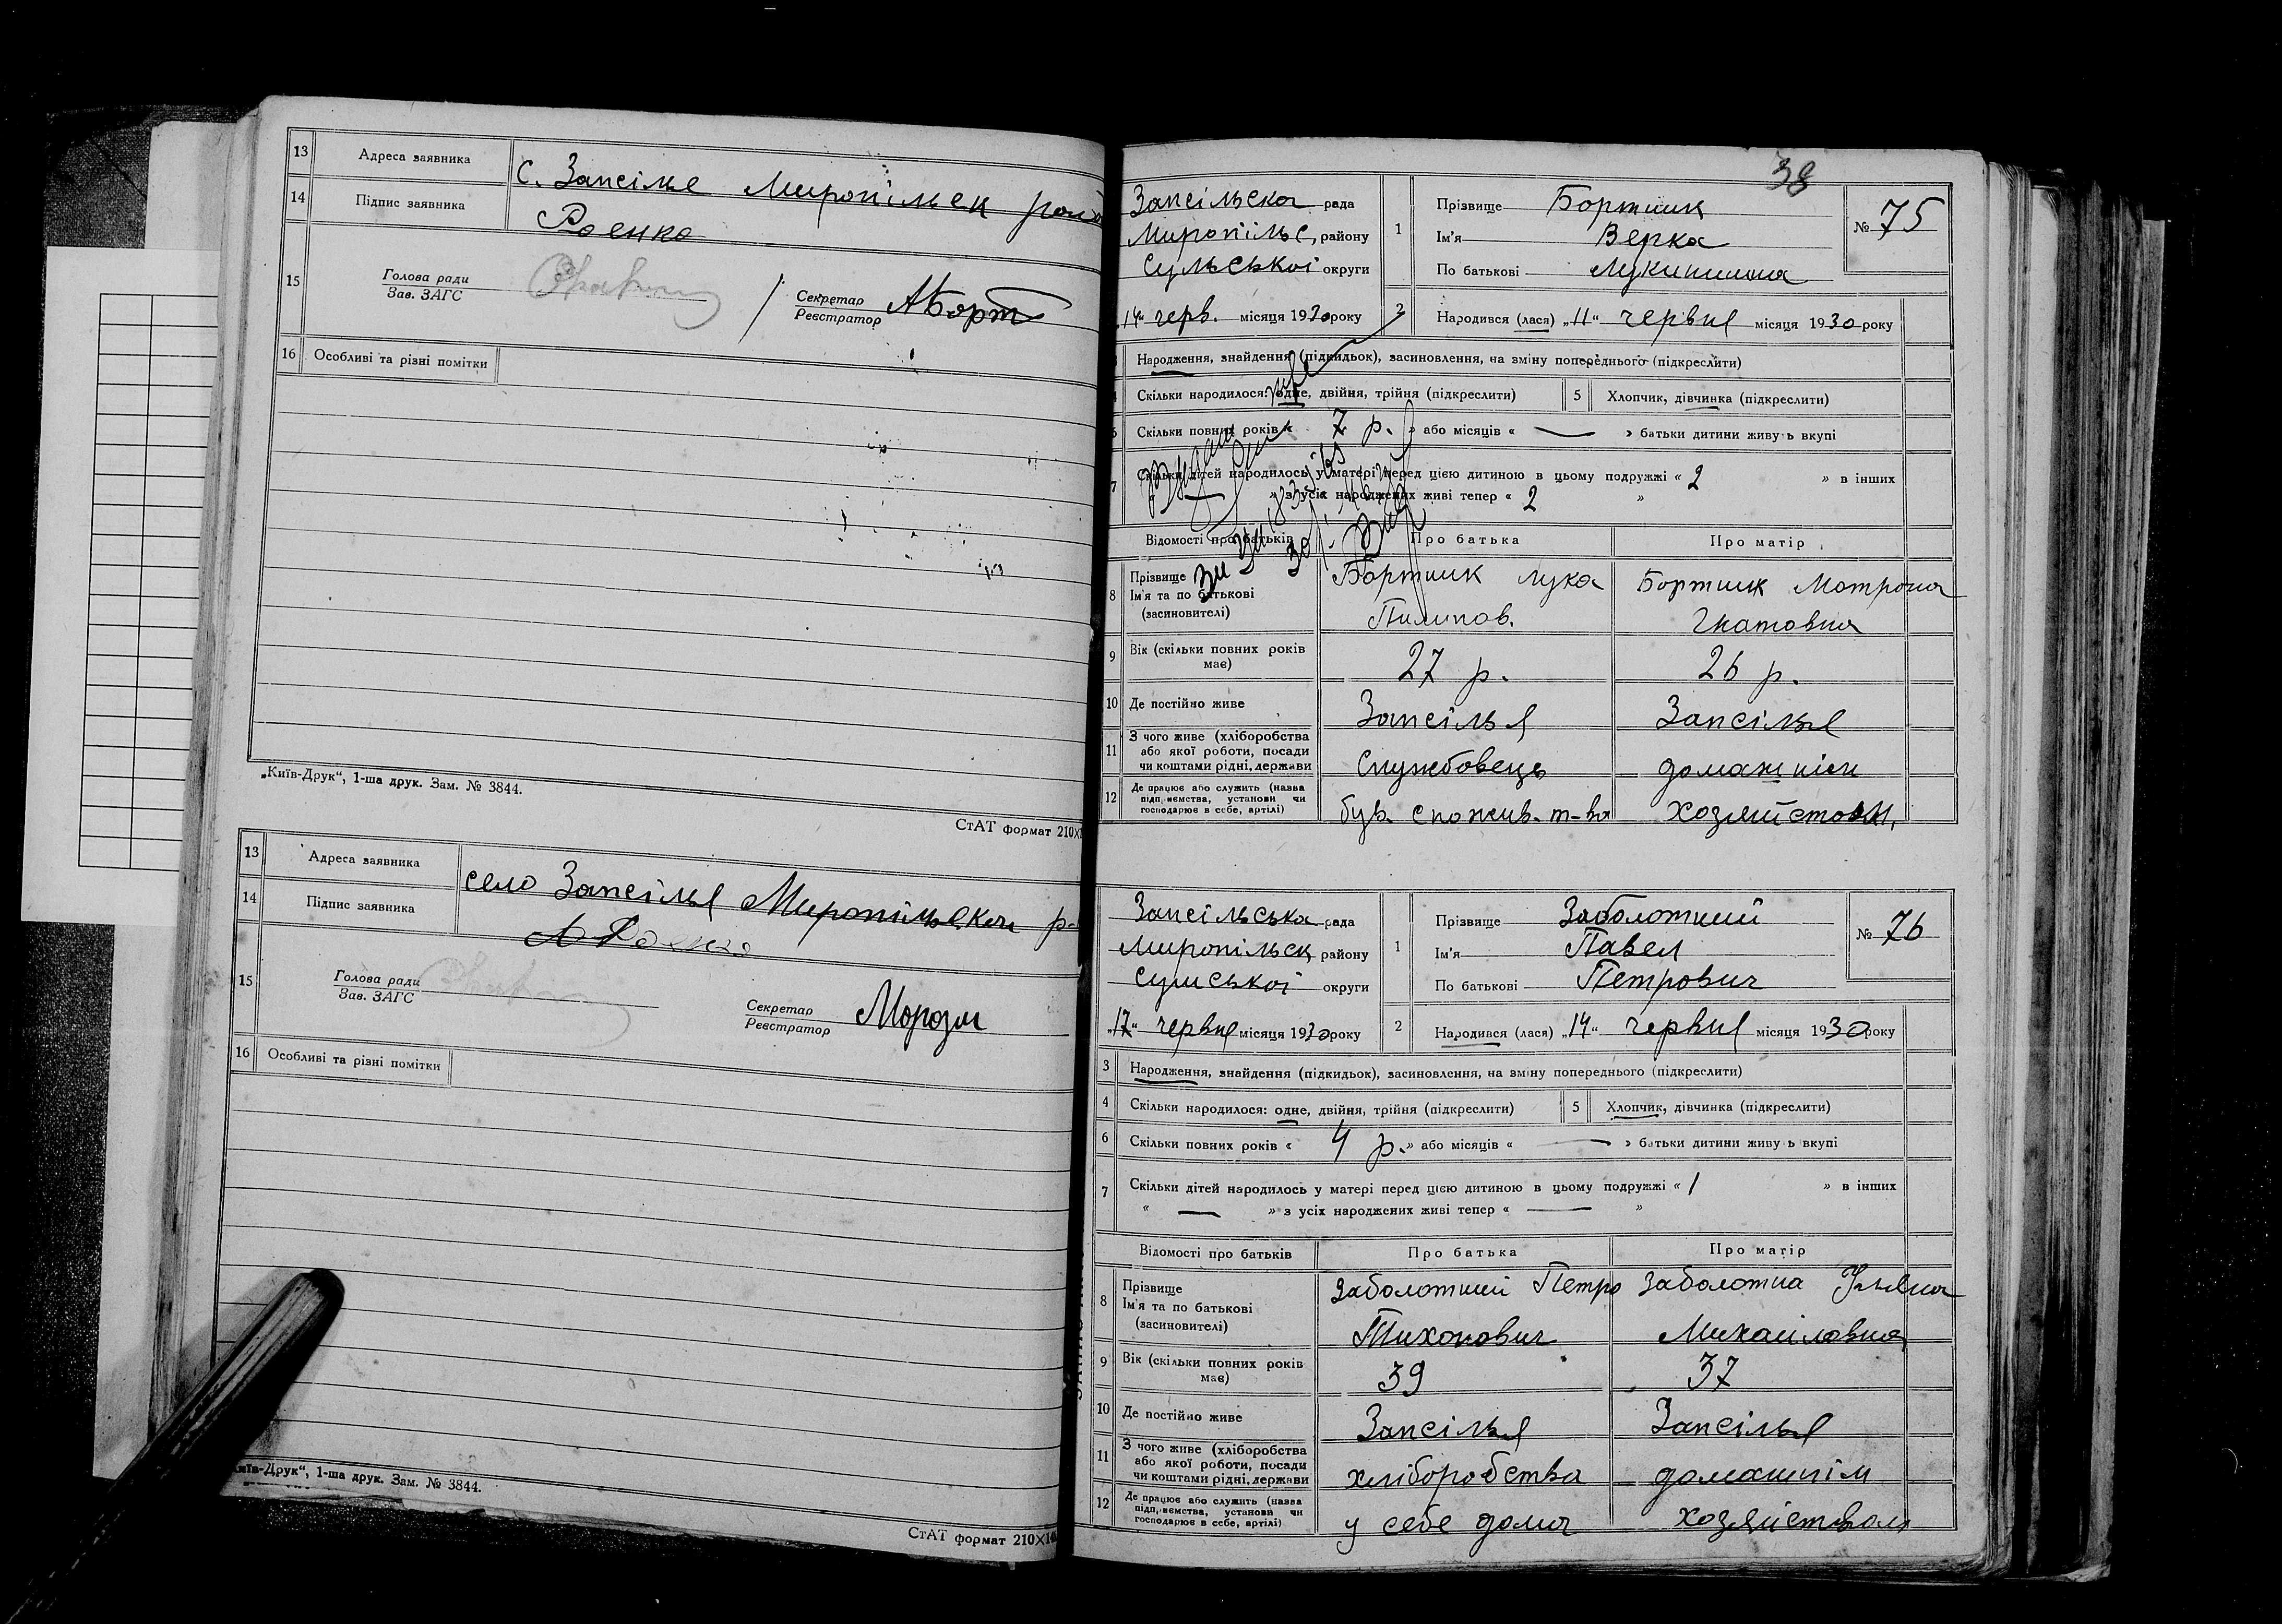 13 Адреса заявника с. Запсілля Миропільськ
14 Підпис заявника Роенко
15 Голова ради
Зав. ЗАГС
Секретар
Реєстратор АБорт
16 Особливі та різні помітки
„Київ-Друк“, 1-ша друк. Зам. № 3844.
СтАТ формат 210X1
13 Адреса заявника село Запсілья Миропільського р-
14 Підпис заявника
15 Голова ради
Зав. ЗАГС
Секретар
Реєстратор
16 Особливі та різні помітки
Київ-Друк“, 1-ша друк. Зам. № 3844.
СтАТ формат 210X14
38
Запсільска рада
Миропільс, району
Сумської округи
„14“ черв. місяця 1930 року
1 Прізвище Бортник
Ім'я Верка
По батькові
№ 75
2 Народився (лася) „11“ червня місяця 1930 року
Народження, знайдення (підкидьок), засиновлення, на зміну попереднього (підкреслити)
Скільки народилося: одне, двійня, трійня (підкреслити) 5 Хлопчик, дівчинка (підкреслити)
Скільки повних років « 7 р. » або місяців « — » батьки дитини живуть вкупі
7 Скільки дітей народилось у матері перед цією дитиною в цьому подружжі « 2 » в інших
» з усіх народжених живі тепер « 2 »
Відомості про батьків Про батька Про матір
8 Прізвище
Ім'я та по батькові
(засиновителі)
Бортник Лука
Пилипов.
Бортник Мотрона
Гнатовна
9 Вік (скільки повних років має) 27 р. 26 р.
10 Де постійно живе Запсілья Запсілья
11 З чого живе (хліборобства
або якої роботи, посади
чи коштами рідні, держави
Службовець домашнім
12 Де працює або служить (назва
підприємства, установи чи
господарює в себе, артілі)
спожив. т-ва хозяйством
Запсільська рада
Миропільск району
Сумської округи
„17“ червня місяця 1930 року
1 Прізвище Заболотний
Ім'я Павел
По батькові Петрович
№ 76
2 Народився (лася) „14“ червня місяця 1930 року
3 Народження, знайдення (підкидьок), засиновлення, на зміну попереднього (підкреслити)
4 Скільки народилося: одне, двійня, трійня (підкреслити) 5 Хлопчик, дівчинка (підкреслити)
6 Скільки повних років « 4 р. » або місяців « — » батьки дитини живуть вкупі
7 Скільки дітей народилось у матері перед цією дитиною в цьому подружжі « 1 » в інших
« — » з усіх народжених живі тепер « — »
Відомості про батьків Про батька Про матір
8 Прізвище
Ім'я та по батькові
(засиновителі)
Заболотний Петро
Тихонович
Заболотна
Михаиловна
9 Вік (скільки повних років має) 39 37
10 Де постійно живе Запсілья Запсілья
11 З чого живе (хліборобства
або якої роботи, посади
чи коштами рідні, держави
хліборобства домашнім
12 Де працює або служить (назва
підприємства, установи чи
господарює в себе, артілі)
у себе дома хозяйством